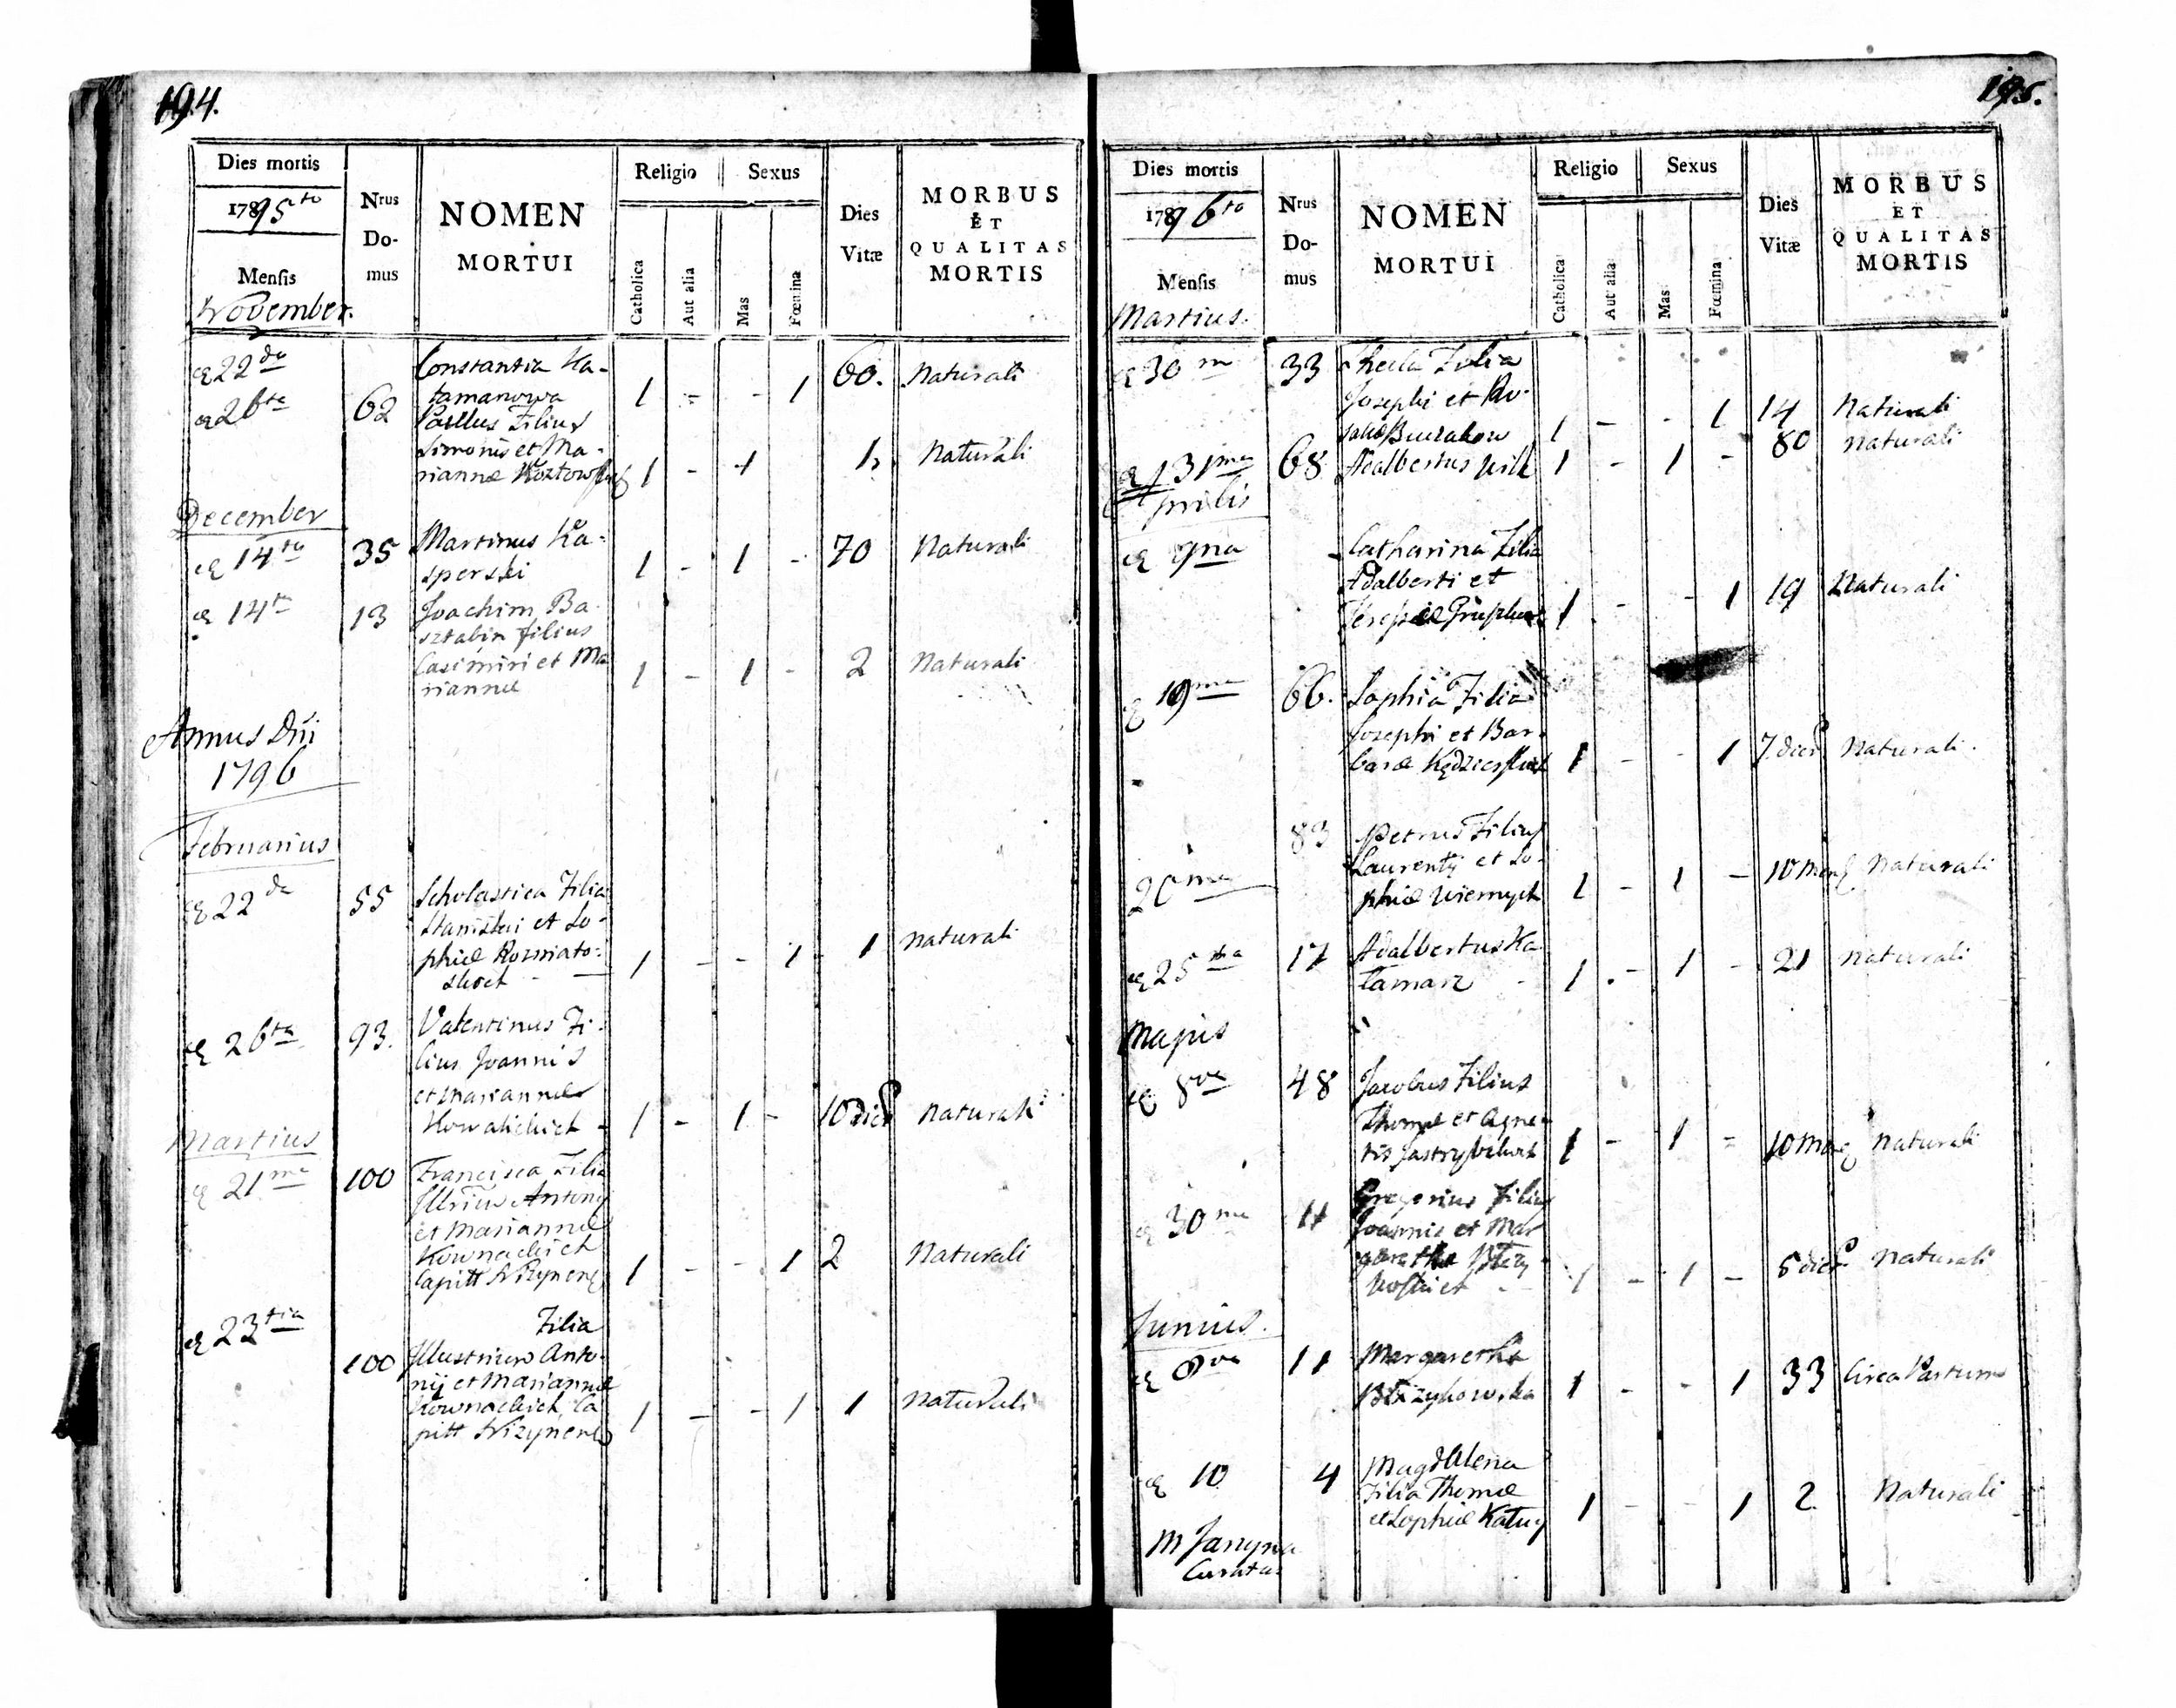 194.
Dies mortis
1795to
Mensis
November.
Nrus
Do-
mus
NOMEN
MORTUI
Religio
Sexus
Catholica
Aut alia
Mas
Fœmina
Dies
Vitæ
MORBUS
ET
QUALITAS
MORTIS
22da
Constantia Ka-
tamanowa
1 - - 1 60. Naturali
26ta 62
Paullus Filius
Simonis et Ma-
riannæ
1 - 1 Naturali
December
14ta 35 Martinus Ka-
sperski
1 - 1 - 70 Naturali
14ta 13 Joachim Ba-
sztabin filius
Casimiri et Ma
riannæ
1 - 1 - 2 Naturali
Annus Dni
1796
Februarius
22da 55 Scholastica Filia
Stanislai et So-
phiæ Rozniato-
1 - - 1 1 Naturali
26ta 93. Valentinus Fi-
lius Joannis
et Mariannæ
1 - 1 - 10 dier Naturali
Martius
21ma 100 Francisca Filia
Antony
et Mariannæ
1 - - 1 2 Naturali
23tia
Filia
100 Anto-
nij et Mariannæ
1 - - 1 1 Naturali
195.
Dies mortis
1796to
Mensis
Martius.
Nrus
Do-
mus
NOMEN
MORTUI
Religio
Sexus
Catholica
Aut alia
Mas
Fœmina
Dies
Vitæ
MORBUS
ET
QUALITAS
MORTIS
30ma 33 Thecla Filia
Josephi et Ro-
1 - - 1 14 Naturali
31ma 68 Adalbertus Wilk 1 - 1 - 80 Naturali
Aprilis
9na Catharina Filia
Adalberti et
1 - - 1 19 Naturali
19ma 66. Sophia Filia
Josephi et Bar-
baræ
1 - - 1 7 dier Naturali.
83 Petrus Filius
Laurentij et So-
phiæ
20ma
1 - 1 - 10 Naturali
25ta 17 Adalbertus Ka
tamarz
1 - 1 - 21 Naturali
Majus
8va 48 Jacobus Filius
Thomæ et Agne-
tis
1 - 1 - 10 Naturali
30ma 11 Gregorius Filius
Joannis et Mar
garethæ
1 - 1 - 5 dier Naturali
Junius.
8va 11 Margaretha
1 - - 1 33 Circa Partum
10 4 Magdalena
Filia Thomæ
et Sophiæ
1 - - 1 2 Naturali
M Janyna
Curatus